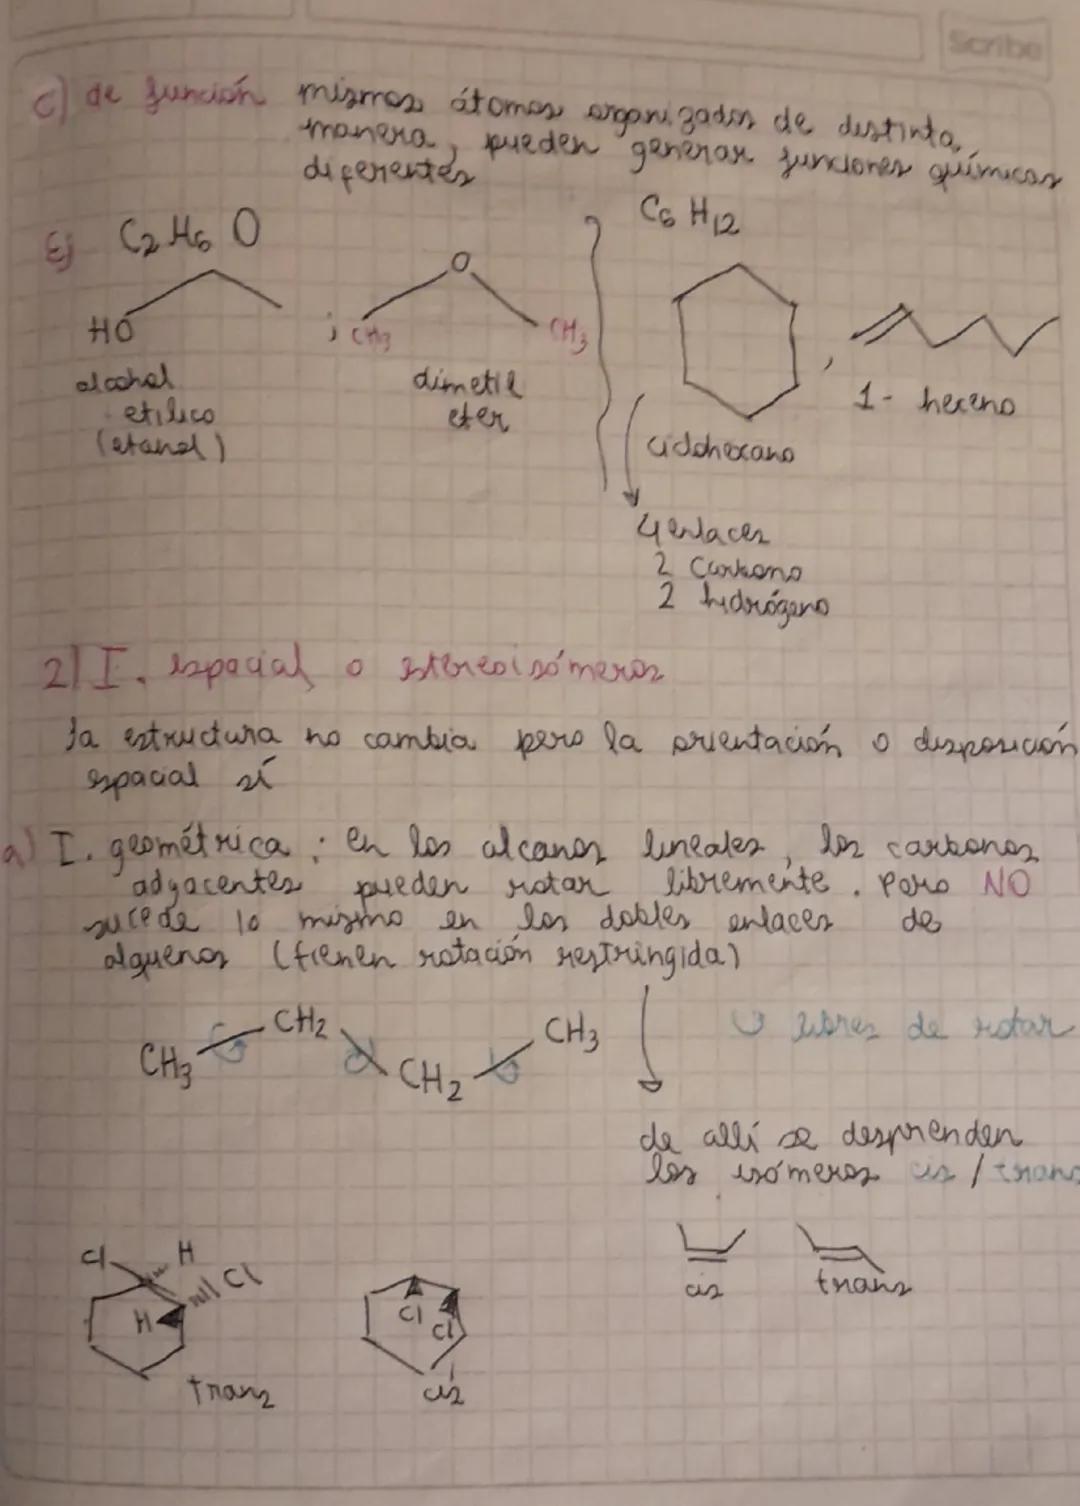 Scribe
c) de función mismos átomos organizados de distinta
manera, pueden generar funciones químicas
diferentes
Ej C2 H6 O
C6 H12
HO
; CH3
O
CH3
,
alcohol
etilico
(etanol)
dimetil
eter
ciclohexano
1- hexeno
4 enlaces
2 Carbono
2 hidrógeno
2) I. espacial o estereoisómeros
la estructura no cambia pero la orientación o disposición
espacial sí
a) I. geométrica : En los alcanos lineales, los carbonos
adyacentes pueden rotar libremente. Pero NO
sucede lo mismo en los dobles enlaces de
alquenos (tienen rotación restringida)
CH3 CH2 CH2 CH3
libres de rotar
de allí se desprenden
los isómeros cis / trans
cis trans
Cl H
Cl
H
trans
Cl
Cl
cis